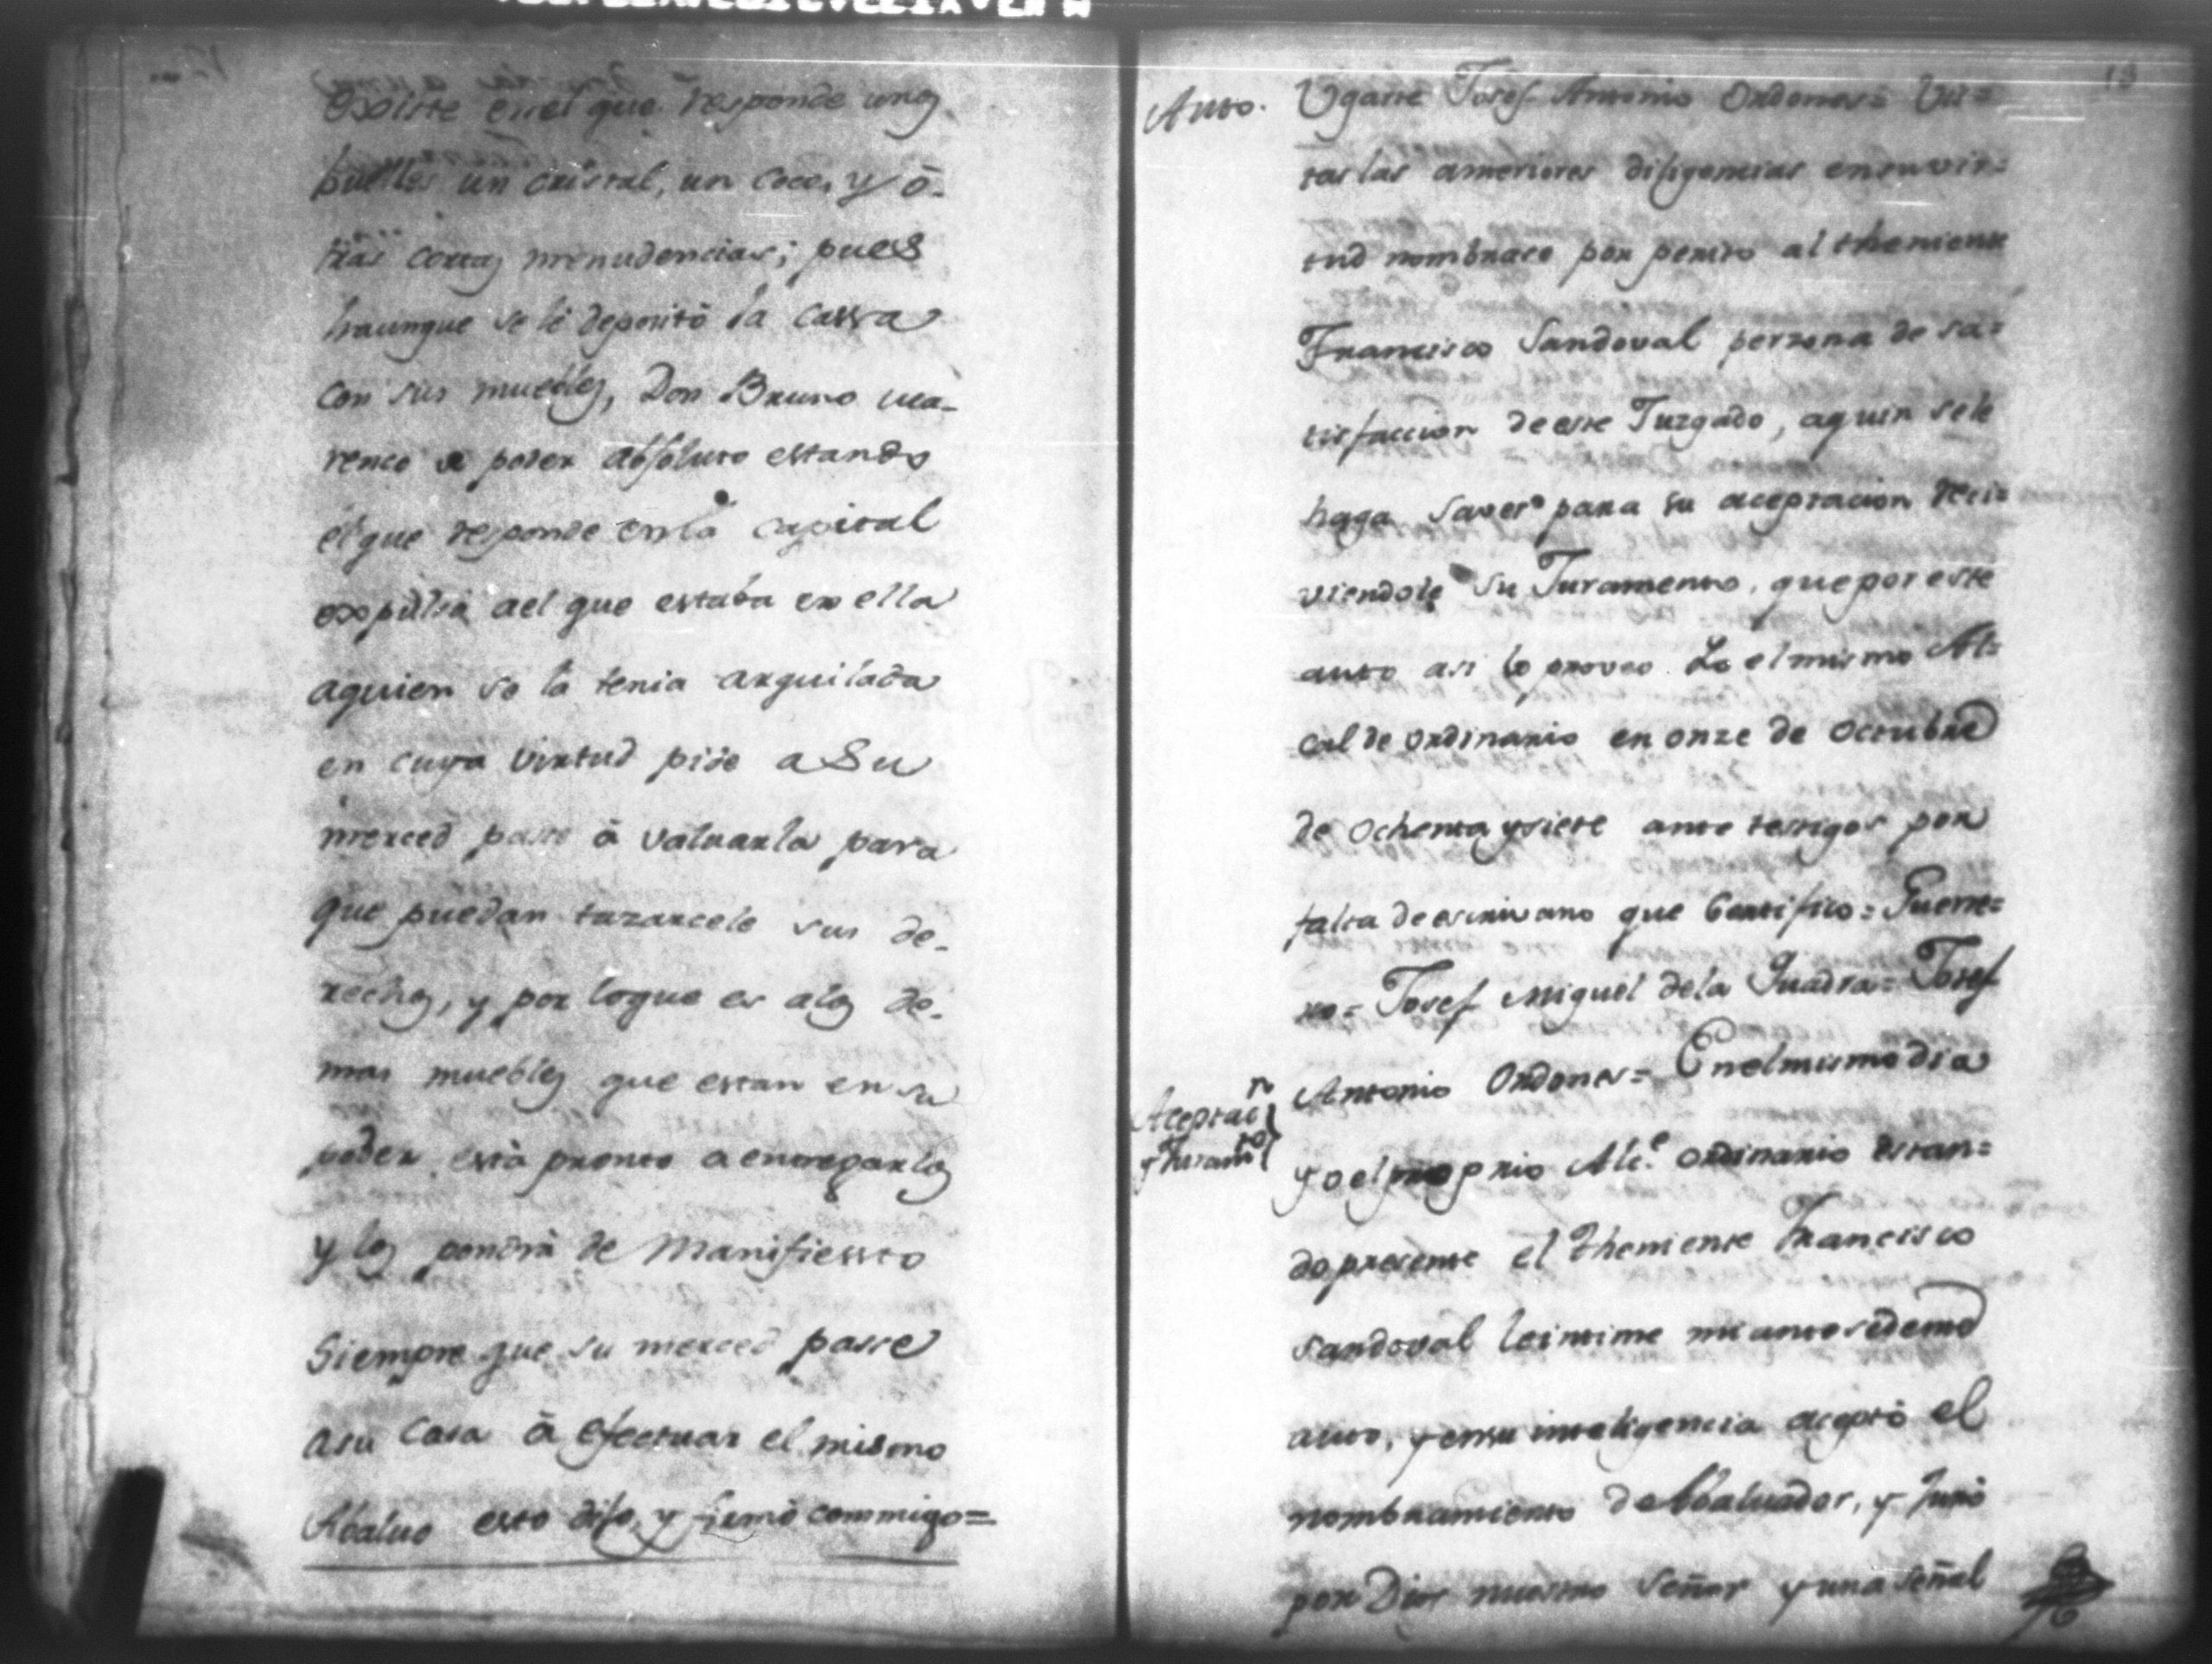 existe en el que responde unos
buelles un cristal, un coco, y ô-
tras cortas menudencias; pues
haunque se le depositò la cassa
con sus muebles, Don Bruno
a poder absoluto estando
el que responde en la capital
expulsa ael que estaba en ella
aquien se la tenia arquilada
en cuya virtud pide a Su
merced passe â valuarla para
que puedan tazarcele sus de-
rechos, y por loque es alos de-
mas muebles que estan en su
poder está pronto a entregarlos
y los pondrà de Manifiessto
Siempre que su merced passe
asu casa â efectuar el mismo
Abaluo esto dijo, y firmò commigo=
18
Auto.
Ugarte Josef Antonio Ordones= Vis=
tas las anteriores diligencias ensuvir=
tud nombrace por perito al theniente
Francisco Sandoval perzona de sa=
tisfaccion de este Juzgado, aquin sele
haga saver para su aceptacion reci=
viendole su Juramento, que por este
auto asi lo proveo Yo el mismo Al=
calde ordinario en onze de octubre
de ochenta ysiete ante testigos por
falta de escrivano que Certifico= Guerre=
ro= Josef Miguel dela Quadra= Josef
Antonio Ordones= Enelmismo dia
Aceptac.n
y Juram.to
yo elproprio Alc.e ordinario estan=
do presente el theniente Francisco
Sandoval leintime
auto, yensu inteligencia aceptò el
nombramiento de Abaluador, y Jurò
por Dios nuestro Señor y una señal